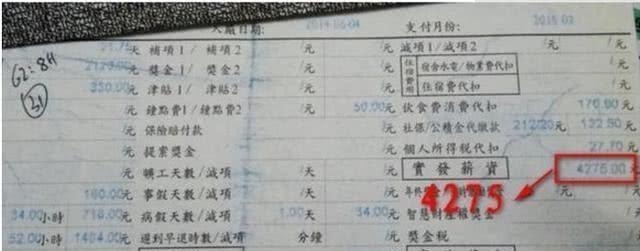 入廠日期: 2014-06-04 支付月份: 2015-03
21.75 天 補項1/ 補項2 /元 減項1/減項2 /元
元 獎金1/ 獎金2 /元 住宿費用 宿舍水電/物業費代扣 /元
350.00 元 津貼1/ 津貼2 /元 住宿費代扣 /元
/元 鐘點費1/鐘點費2 50.00 元 飲食費消費代扣 170.60 元
/元 保險賠付款 /元 社保/公積金代繳款 212/20 元 132.50 元
/元 提案獎金 /元 個人所得稅代扣 27.70 元
/元 曠工天數/減項 /天 /元 實發薪資 4275.00 元
160.00 元 事假天數/減項 /天 /元
34.00 小時 718.00 元 病假天數/減項 1.00 天 34.00 元 智慧財產權獎金 /元
52.00 小時 1464.00 元 遲到早退時數/減項 分鐘 /元 獎金稅 /元
G2:8H
21
4275